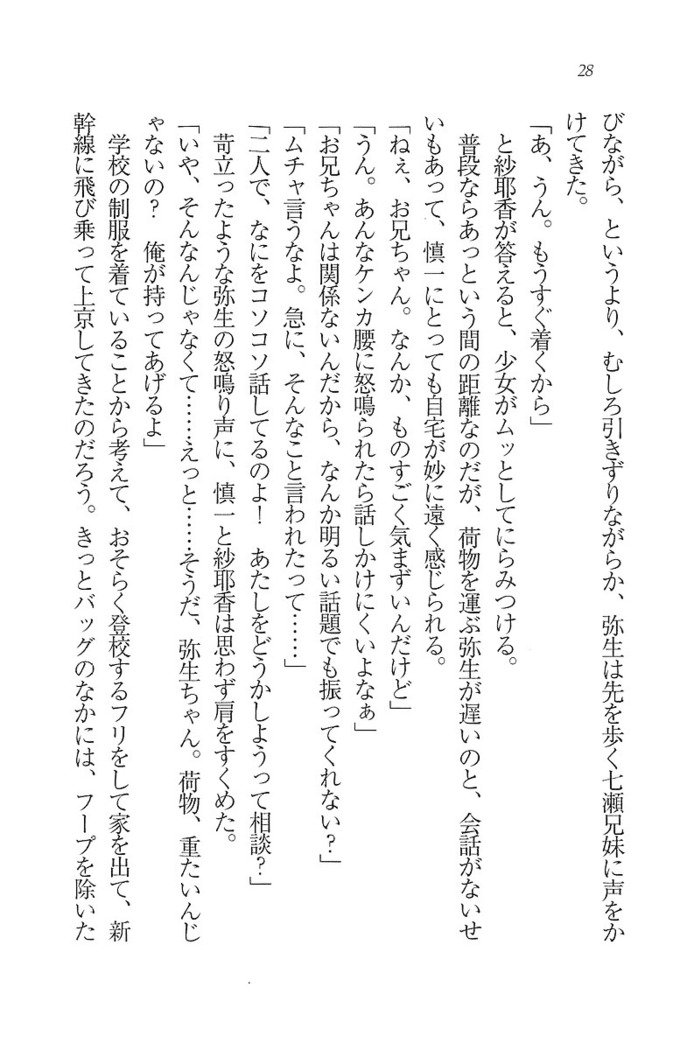 28
びながら、というより、むしろ引きずりながらか、弥生は先を歩く七瀬兄妹に声をか
けてきた。
「あ、うん。もうすぐ着くから」
と紗耶香が答えると、少女がムッとしてにらみつける。
普段ならあっという間の距離なのだが、荷物を運ぶ弥生が遅いのと、会話がないせ
いもあって、慎一にとっても自宅が妙に遠く感じられる。
「ねぇ、お兄ちゃん。なんか、ものすごく気まずいんだけど」
「うん。あんなケンカ腰に怒鳴られたら話しかけにくいよなぁ」
「お兄ちゃんは関係ないんだから、なんか明るい話題でも振ってくれない？」
「ムチャ言うなよ。急に、そんなこと言われたって……」
「二人で、なにをコソコソ話してるのよ！　あたしをどうかしようって相談？」
苛立ったような弥生の怒鳴り声に、慎一と紗耶香は思わず肩をすくめた。
「いや、そんなんじゃなくて……えっと……そうだ、弥生ちゃん。荷物、重たいんじ
ゃないの？　俺が持ってあげるよ」
学校の制服を着ていることから考えて、おそらく登校するフリをして家を出て、新
幹線に飛び乗って上京してきたのだろう。きっとバッグのなかには、フープを除いた